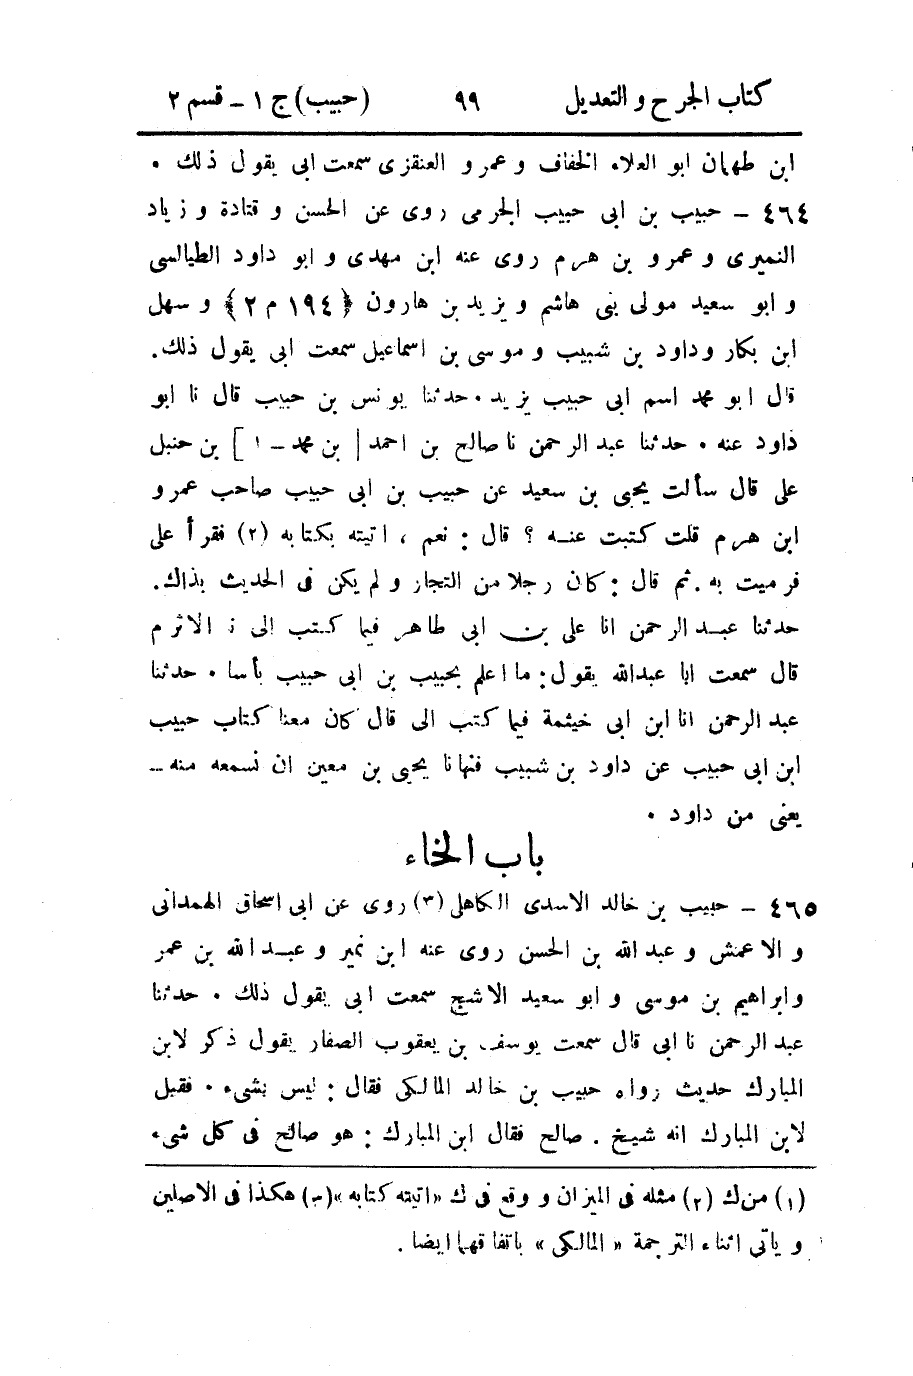 كتاب الجرح والتعديل ٩٩ (حبيب) ج ١ - قسم ٢
ابن طهمان ابو العلاء الخفاف وعمرو العنقزى سمعت ابى يقول ذلك .
٤٦٤ - حبيب بن ابى حبيب الجرمى روى عن الحسن و قتادة و زياد
النميرى و عمرو بن هرم روى عنه ابن مهدى و ابو داود الطيالسى
و ابو سعيد مولى بنى هاشم و يزيد بن هارون ﴿١٩٤ م ٢﴾ و سهل
ابن بكار وداود بن شبيب و موسى بن اسماعيل سمعت ابى يقول ذلك.
قال ابو محمد اسم ابى حبيب يزيد . حدثنا يونس بن حبيب قال نا ابو
داود عنه . حدثنا عبد الرحمن نا صالح بن احمد [ بن محمد - ١ ] بن حنبل
على قال سألت يحيى بن سعيد عن حبيب بن ابى حبيب صاحب عمرو
ابن هرم قلت كتبت عنه ؟ قال : نعم ، اتيته بكتابه (٢) فقرأ على
فرميت به . ثم قال : كان رجلا من التجار و لم يكن فى الحديث بذاك.
حدثنا عبد الرحمن انا على بن ابى طاهر فيما كتب الى نا الاثرم
قال سمعت ابا عبدالله يقول : ما اعلم بحبيب بن ابى حبيب بأسا . حدثنا
عبد الرحمن انا ابن ابى خيثمة فيما كتب الى قال كان معنا كتاب حبيب
ابن ابى حبيب عن داود بن شبيب فنهانا يحيى بن معين ان نسمعه منه -
يعنى من داود .
باب الخاء
٤٦٥ - حبيب بن خالد الاسدى الكاهلى (٣) روى عن ابى اسحاق الهمدانى
و الاعمش و عبد الله بن الحسن روى عنه ابن نمير و عبد الله بن عمر
وابراهيم بن موسى و ابو سعيد الاشج سمعت ابى يقول ذلك . حدثنا
عبد الرحمن نا ابى قال سمعت يوسف بن يعقوب الصفار يقول ذكر لابن
المبارك حديث رواه حبيب بن خالد المالكى فقال : ليس بشىء . فقيل
لابن المبارك انه شيخ . صالح فقال ابن المبارك : هو صالح فى كل شىء
(١) من ك (٢) مثله فى الميزان و وقع فى ك «اتيته كتابه» (٣) هكذا فى الاصلين
و يأتى اثناء الترجمة « المالكى » باتفاقهما ايضا .